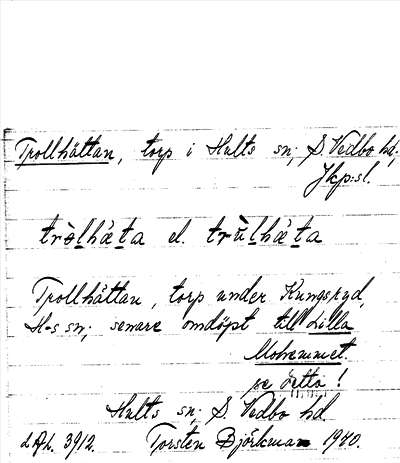 Trollhättan, torp i Hults sn; S. Vedbo hd.
Jkp:sl.
tròlhä̀ta el. trùlhä̀ta
Trollhättan, torp under Kungsryd,
H-s sn; senare omdöpt till Lilla
Mohemmet.
se detta!
Hults sn; S. Vedbo hd.
3912. Torsten Björkman 1940.